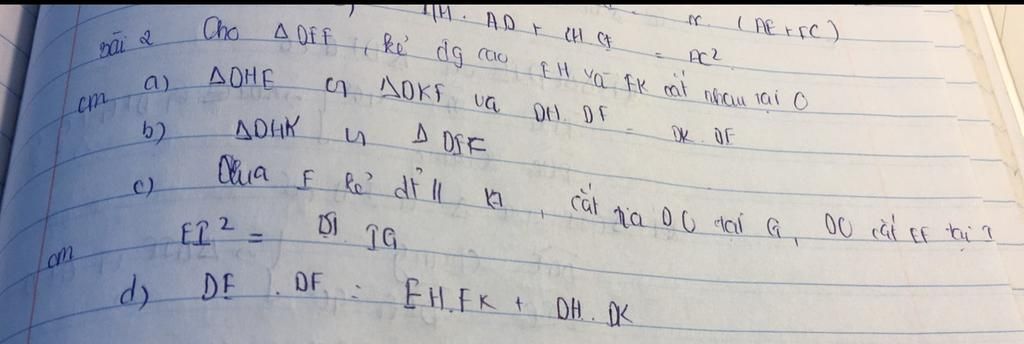 IH. AD + CH CF = AC² (AE+FC)
Bài 2 Cho ΔDEF, kẻ đg cao EH và FK cắt nhau tại O
cm a) ΔDHE ᔕ ΔDKF và DH. DF = DK. DE
b) ΔDHK ᔕ Δ DEF
c) Qua F kẻ đt // KI, cắt tia DO tại G, DO cắt EF tại I
cm EI² = DI. IG
d) DE . DF = EH.FK + DH. DK